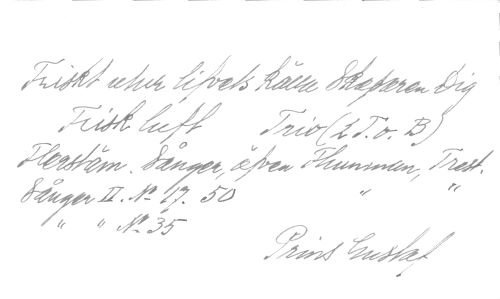 Friskt utur lifvets källa Skaparen Dig
Frisk luft Trio (2 T. o. B)
Flerstäm. Sånger, äfven Thunman, Trest.
Sånger II. No 17. 50 " "
" " No 35
Prins Gustaf